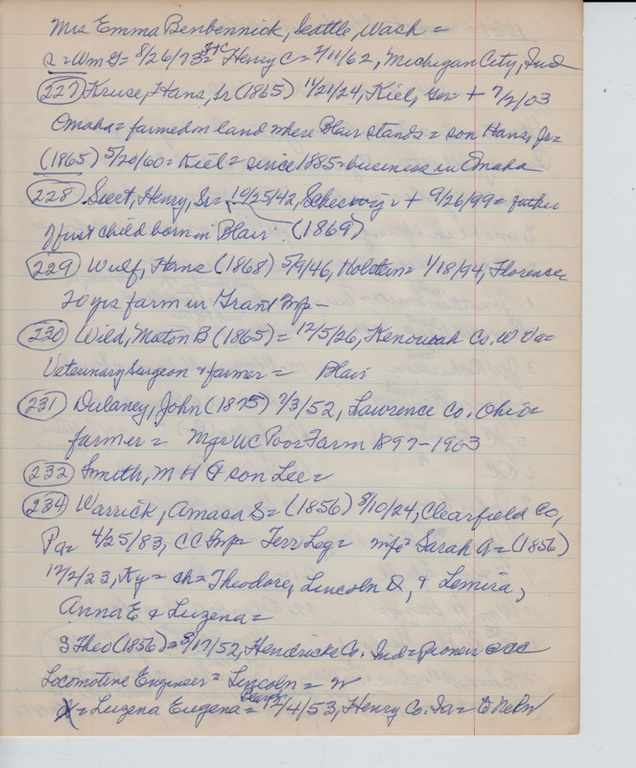 Mrs Emma Benbennick, Seattle, Wash =
2 = Wm G = 8/26/73 = Henry C = 2/11/62, Michigan City, Ind
(227) Kruse, Hans, Sr (1865) 11/21/24, Kiel, Ger + 7/2/03
Omaha = farmed on land where Blair stands = son Hans, Jr =
(1865) 5/20/60 = Kiel = since 1885 = business in Omaha
(228) Siert, Henry, Sr = 10/25/42, + 9/26/99 = father
of first child born in Blair (1869)
(229) Wulf, Hans (1868) 5/9/46, Holstein = 1/18/94, Florence
20 yrs farm in Grant Tmp -
(230) Wild, Maton B (1865) = 12/5/26, Kenowah Co. W Va =
Veterinary Surgeon & farmer = Blair
(231) Dulaney, John (1875) 7/3/52, Lawrence Co. Ohio =
farmer = Mgr WC Poor Farm 1897-1903
(232) Smith, M H & son Lee =
(234) Warrick, Amasa S = (1856) 8/10/24, Clearfield Co,
Pa = 4/25/83, CC Tmp = Terr Leg = wife Sarah A = (1856)
12/2/23, Ky = ch = Theodore, Lincoln D, & Lemira,
Anna E & Luzena =
S Theo (1856) = 8/17/52, Hendricks Co. Ind = Pioneer
Locomotive Engineer = Lincoln =
X = Luzena Eugena = 12/4/53, Henry Co. Ia =